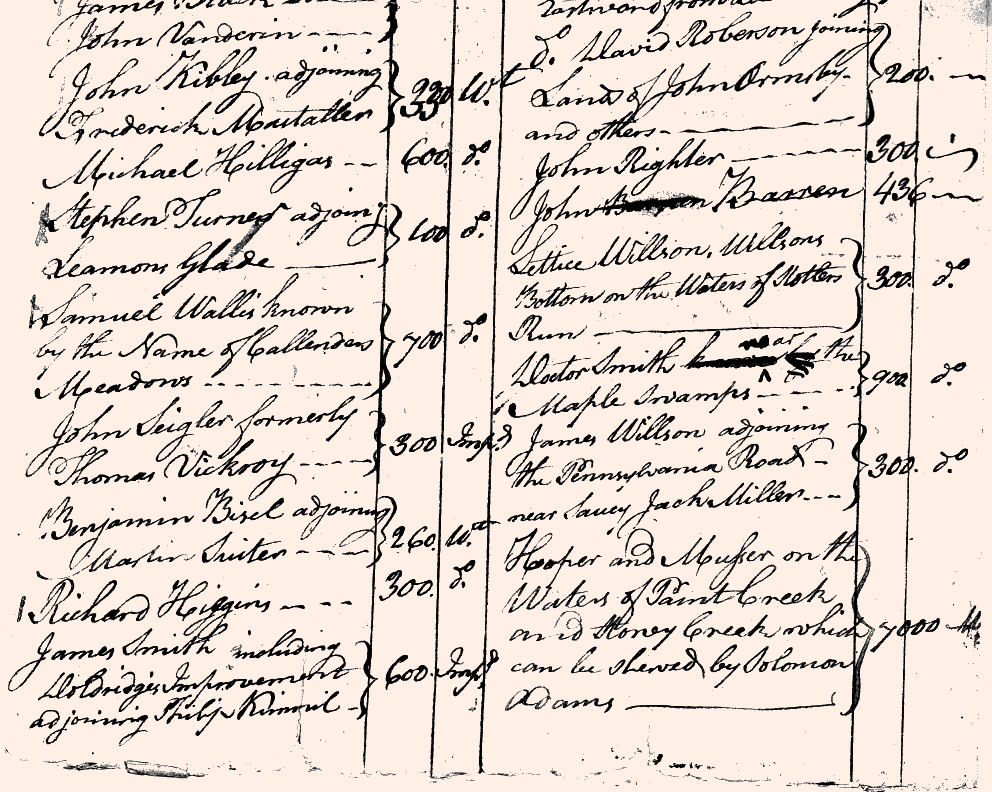 James Black
John Vanderin ----
John Kibley adjoining
Frederick Mostatler } 330 Wt
Michael Hilligas -- 600 do
Stephen Turner adjoing
Leamons Glade } 100 do
Samuel Wallis known
by the Name of Callenders } 700 do
Meadows ----------
John Seigler formerly
Thomas Vickroy ----- } 300 Impd
Benjamin Bisel adjoining
Martin Suiter ---- } 260. Wt
Richard Higgins ---- 300. do
James Smith including
Woldridges Improvement } 600 Impd
adjoining Philip Kimmil -
Eastward from
do David Roberson joining
Land of John Ormsby- } 200. —
and others-
John Righter 300.
John Barren 436 —
Lettice Willson, Willsons
Bottom on the Waters of } 300. do
Run
Doctor Smith near the
Maple Swamps } 900 do
James Willson adjoining
the Pennsylvania Road - } 300. do
near Saucy Jack Millers ---
Hooper and Musser on the
Waters of Paint Creek
and Stoney Creek which } 7000
can be shewed by Solomon
Adams